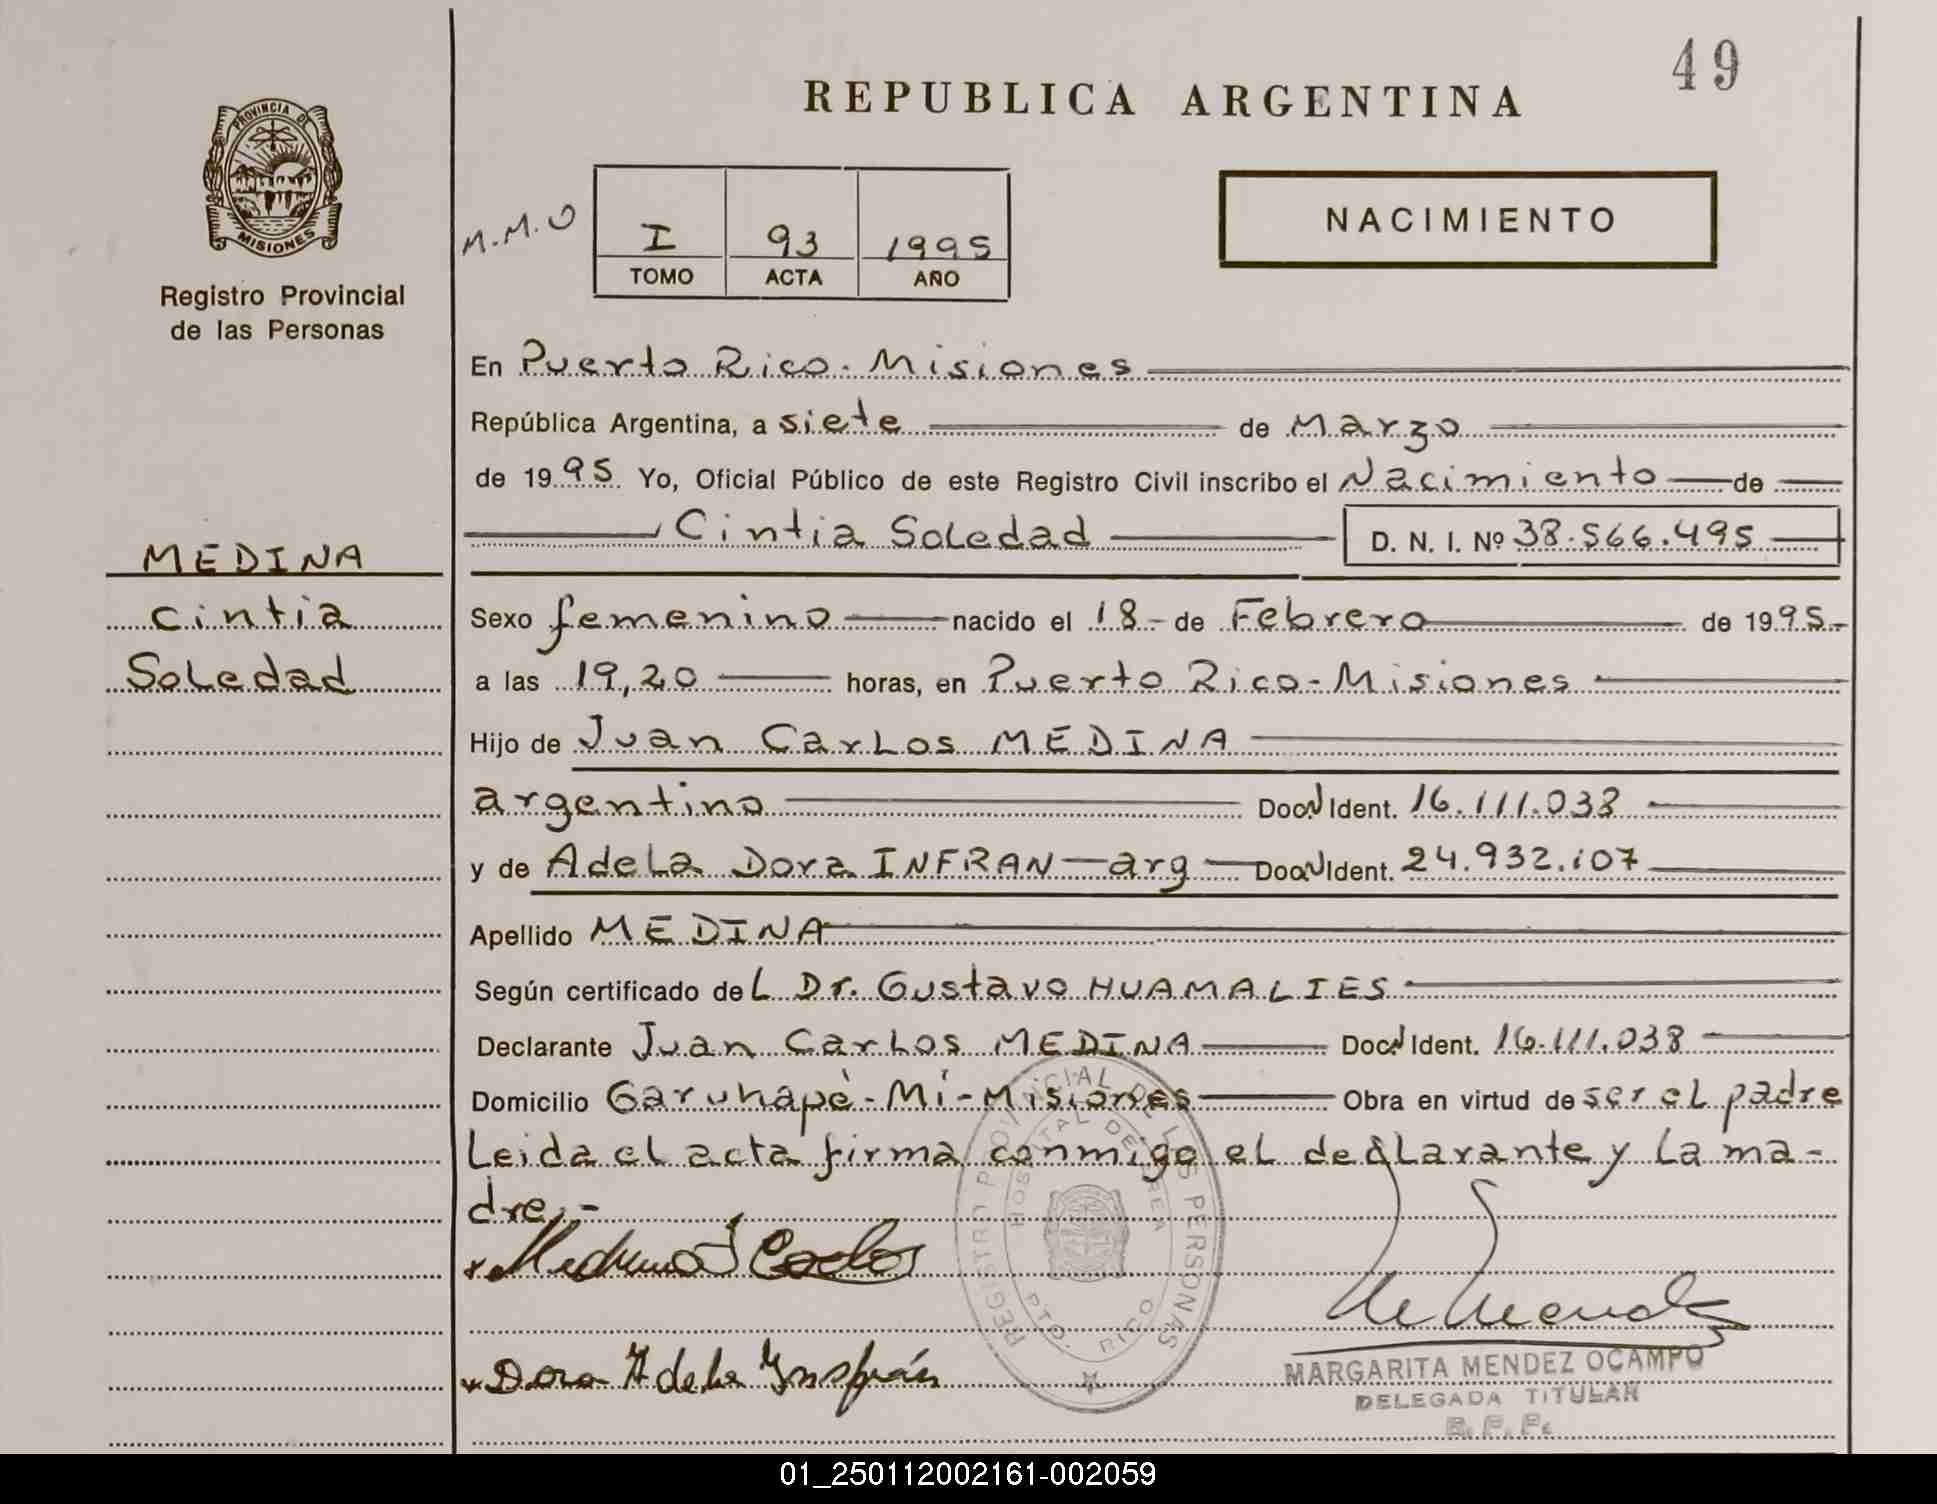 49
REPUBLICA ARGENTINA
PROVINCIA DE MISIONES
Registro Provincial
de las Personas
M.M.O
I 93 1995
TOMO ACTA AÑO
NACIMIENTO
En Puerto Rico - Misiones
República Argentina, a siete de Marzo
de 1995 Yo, Oficial Público de este Registro Civil inscribo el Nacimiento de
Cintia Soledad D. N. I. Nº 38.566.495
MEDINA
Cintia
Soledad
Sexo femenino nacido el 18 - de Febrero de 1995.-
a las 19,20 horas, en Puerto Rico - Misiones
Hijo de Juan Carlos MEDINA
argentino Doc. N Ident. 16.111.038
y de Adela Dora INFRAN - arg Doc. N Ident. 24.932.107
Apellido MEDINA
Según certificado del Dr. Gustavo HUAMALIES
Declarante Juan Carlos MEDINA Doc. N Ident. 16.111.038
Domicilio Garuhapè - Mì - Misiones Obra en virtud de ser el padre
Leida el acta firma conmigo el declarante y la ma-
dre.-
x Medina J Carlos
x Dora Adela Insfrán
REGISTRO PROVINCIAL DE LAS PERSONAS
HOSPITAL DE AREA
PTO. RICO
MARGARITA MENDEZ OCAMPO
DELEGADA TITULAR
R. P. P.
01_250112002161-002059